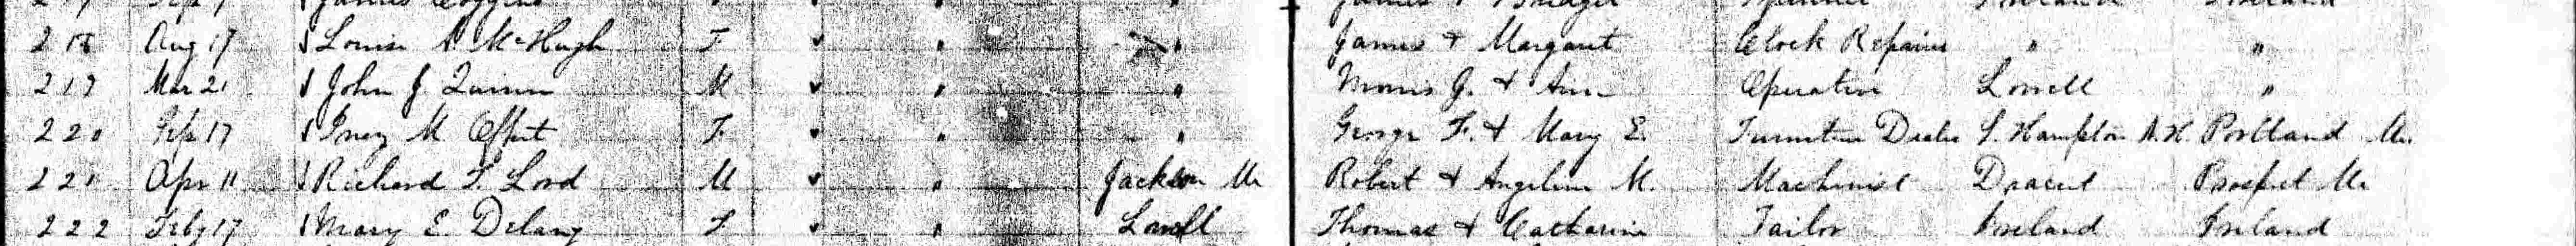 218 Aug 17 Louisa A McHugh F " " " James & Margaret Clock Repairer " "
219 Mar 21 John J Quinn M " " " Morris J. & Ann Operative Lowell "
220 Sep 17 Inez M Offut F " " " George F. & Mary E. Furniture Dealer S. Hampton N.H. Portland Me.
221 Apr 11 Richard F. Lord M " " Jackson Me Robert & Angeline M. Machinist Dracut Prospect Me
222 Feby 17 Mary E Delany F " " Lowell Thomas & Catharine Tailor Ireland Ireland